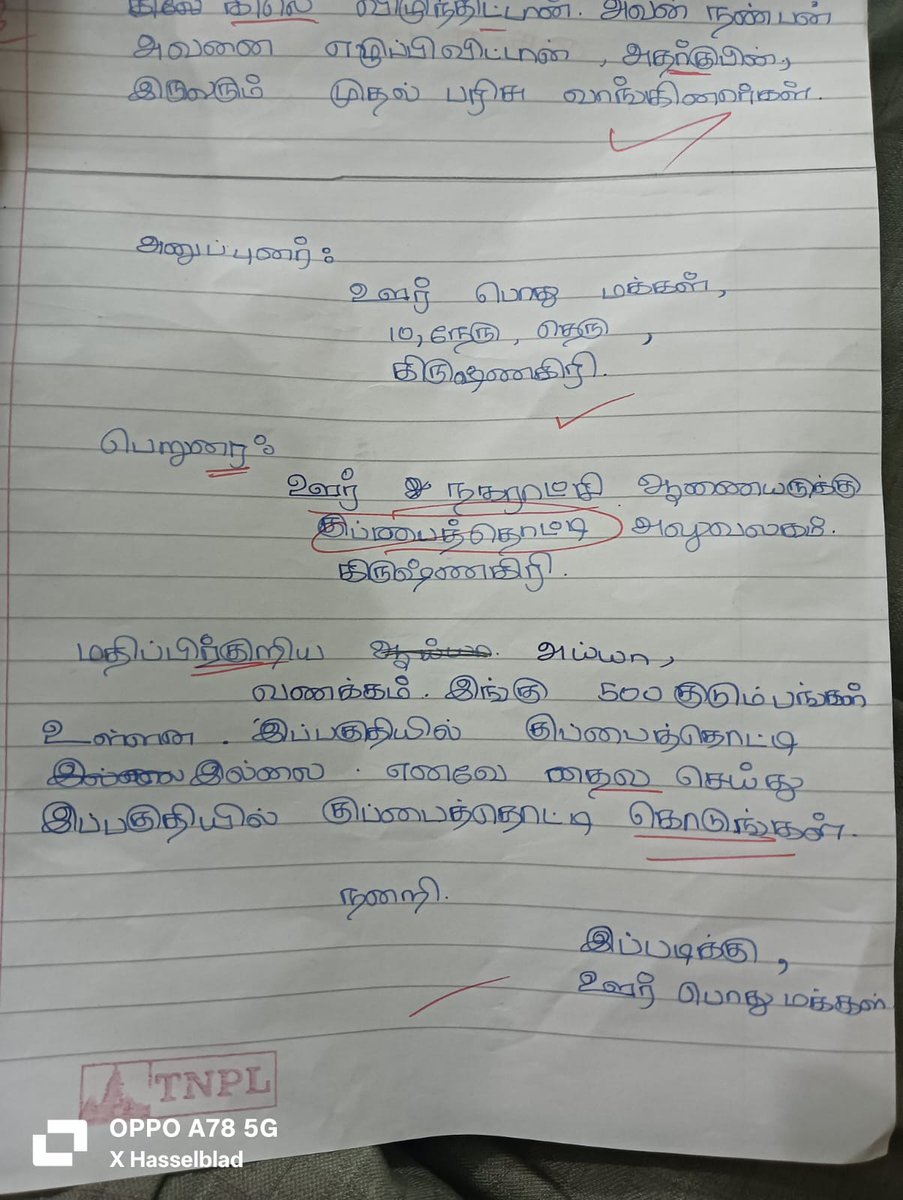 விழுந்திட்டான். அவன் நண்பன்
அவனை எழுப்பிவிட்டான், அதர்குபின்,
இருவரும் முதல் பரிசு வாங்கினார்கள்.
அனுப்புனர் :
ஊர் பொது மக்கள்,
10, நேரு, தெரு ,
கிருஷ்ணகிரி.
பெறுனர :
ஊர் நகராட்சி ஆணையருக்கு
குப்பைத்தொட்டி அலுவலகம்.
கிருஷ்ணகிரி.
மதிப்பிர்குறிய அய்யா,
வணக்கம். இங்கு 500 குடும்பங்கள்
உள்ளன. இப்பகுதியில் குப்பைத்தொட்டி
இல்லை. எனவே தைவ செய்து
இப்பகுதியில் குப்பைத்தொட்டி கொடுங்கள்.
நன்றி.
இப்படிக்கு,
ஊர் பொது மக்கள்
TNPL
OPPO A78 5G
X Hasselblad